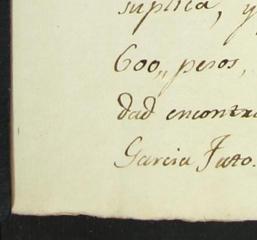 suplica, y
600,, pesos,
dad encontra
Garcia Jato.